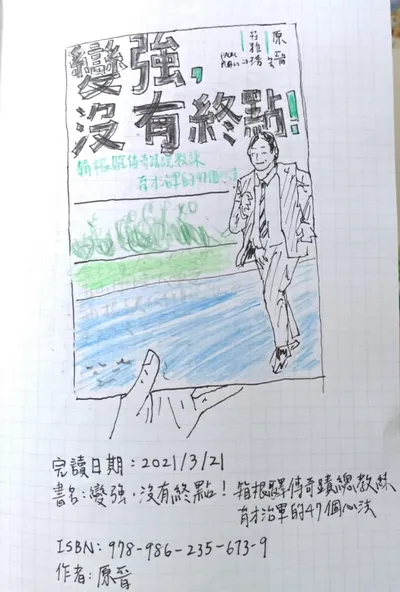 變強,
沒有終點!
原晉
箱根驛傳奇蹟總教練
育才治軍的47個心法
完讀日期:2021/3/21
書名:變強,沒有終點! 箱根驛傳奇蹟總教練
育才治軍的47個心法
ISBN: 978-986-235-673-9
作者:原晉